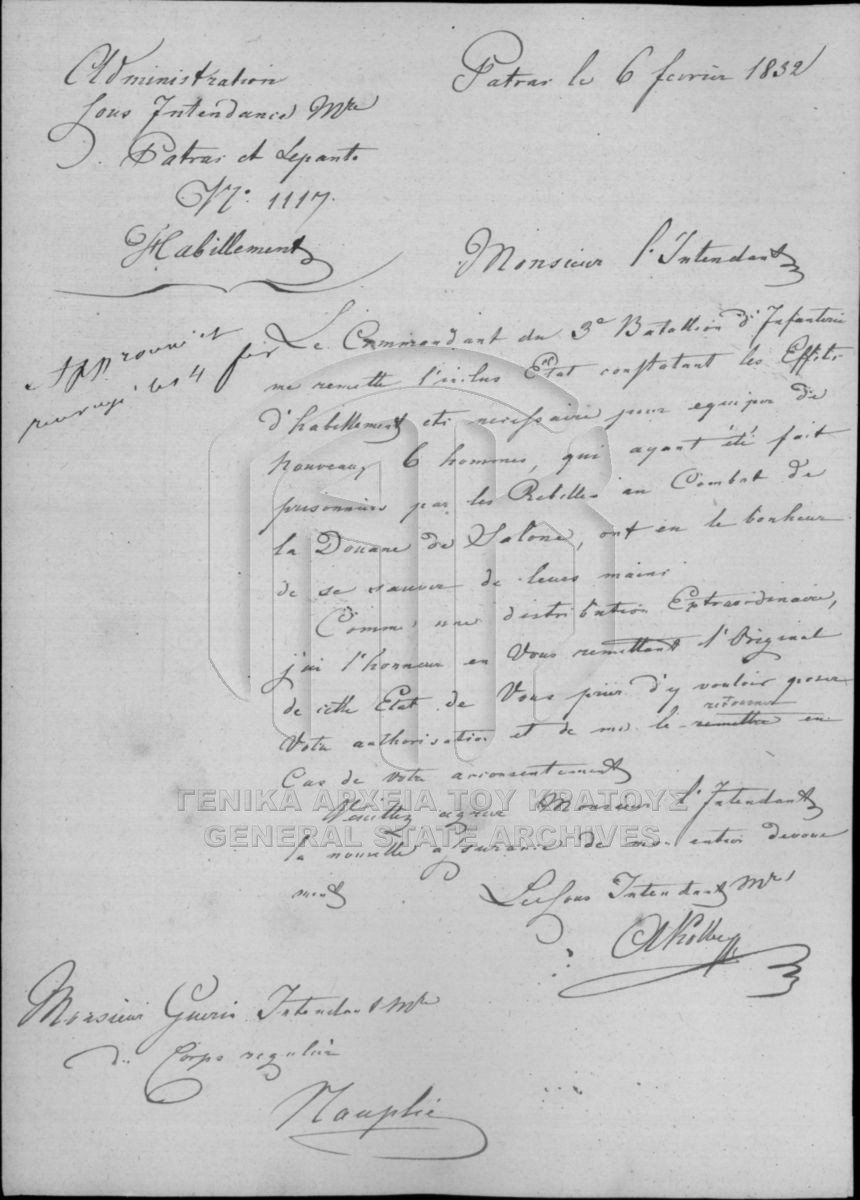 Administration
Sous Intendance Mre
Patras et Lepante
No. 1117.
Habillement
Patras le 6 fevrier 1832
Monsieur l'Intendant
Approuvé et
renvoyé le 14 fev
Le Commandant du 3e Batallion d'Infanterie
me remette l'inclus Etat constatant les Effets
d'habillement etc necessaire pour equiper de
nouveau 6 hommes, qui ayant été fait
prisonniers par les Rebelles au Combat de
la Douane de Salone, ont eu le bonheur
de se sauver de leurs mains.
Comme une distribution Extraordinaire,
j'ai l'honneur en Vous remettant l'Original
de cette Etat de Vous prier d'y vouloir poser
Votre authorisation et de me le remettre retourner en
Cas de votre aconsentement
Veuillez agréer Monsieur l'Intendant
la nouvelle assurance de mon entier devoue
ment
Le Sous Intendant Mre
Monsieur Guerin Intendant Mre
du Corps regulier
Nauplie
ΓΕΝΙΚΑ ΑΡΧΕΙΑ ΤΟΥ ΚΡΑΤΟΥΣ
GENERAL STATE ARCHIVES